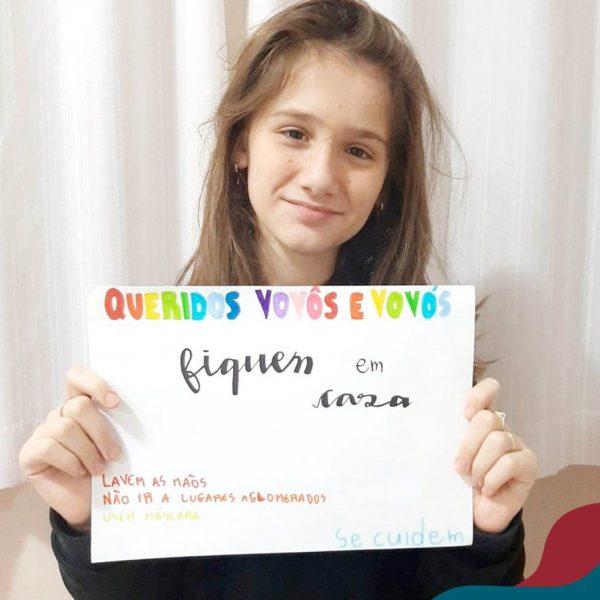 QUERIDOS VOVÔS E VOVÓS
fiquem em
casa
LAVEM AS MÃOS
NÃO IR A LUGARES AGLOMERADOS
USEM MÁSCARA
se cuidem